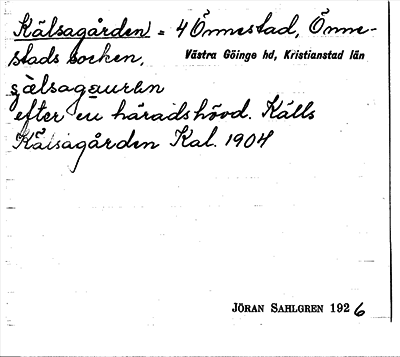 Kälsagården) = 4 Önnestad, Önne-
stads socken, Västra Göinge hd, Kristianstad län
efter en häradshövd. Källs
Kälsagården Kal. 1904
JÖRAN SAHLGREN 1926